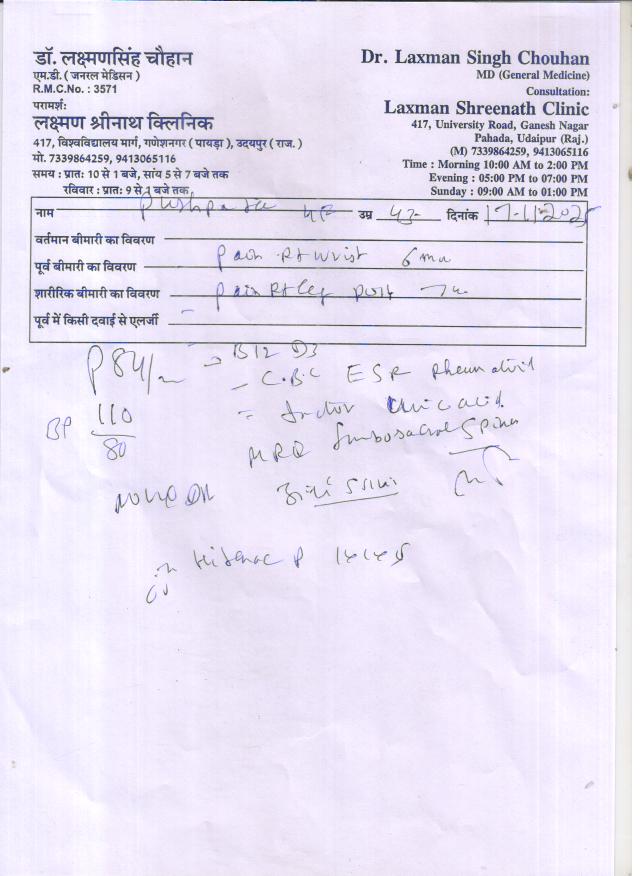 डॉ. लक्ष्मणसिंह चौहान
एम.डी. ( जनरल मेडिसन )
R.M.C.No. : 3571
परामर्श:
लक्ष्मण श्रीनाथ क्लिनिक
417, विश्वविद्यालय मार्ग, गणेशनगर ( पायड़ा ), उदयपुर ( राज. )
मो. 7339864259, 9413065116
समय : प्रात: 10 से 1 बजे, सांय 5 से 7 बजे तक
रविवार : प्रात: 9 से 1 बजे तक
Dr. Laxman Singh Chouhan
MD (General Medicine)
Consultation:
Laxman Shreenath Clinic
417, University Road, Ganesh Nagar
Pahada, Udaipur (Raj.)
(M) 7339864259, 9413065116
Time : Morning 10:00 AM to 2:00 PM
Evening : 05:00 PM to 07:00 PM
Sunday : 09:00 AM to 01:00 PM
नाम उम्र 43 दिनांक 17-11-2025
वर्तमान बीमारी का विवरण
पूर्व बीमारी का विवरण Pain Rt wrist 6
शारीरिक बीमारी का विवरण Pain Rt leg
पूर्व में किसी दवाई से एलर्जी
P 84/ B12 D3
C.B.C ESR Rheumatoid
BP 110/80 factor Uric acid
Lumbosacral Spine